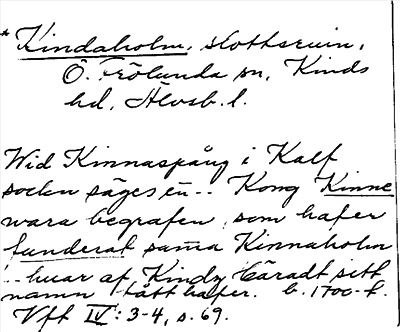 * Kindaholm, slottsruin,
Ö. Frölunda sn, Kinds
hd, Älvsb. l.
Wid Kinnaspång i Kalf
sockn säges en .. Kong Kinne
wara begrafen, som hafer
funderat sama Kinnaholm
... huar af Kindz häradt sitt
namn fått hafer. b. 1700-t.
Vft IV: 3-4, s. 69.